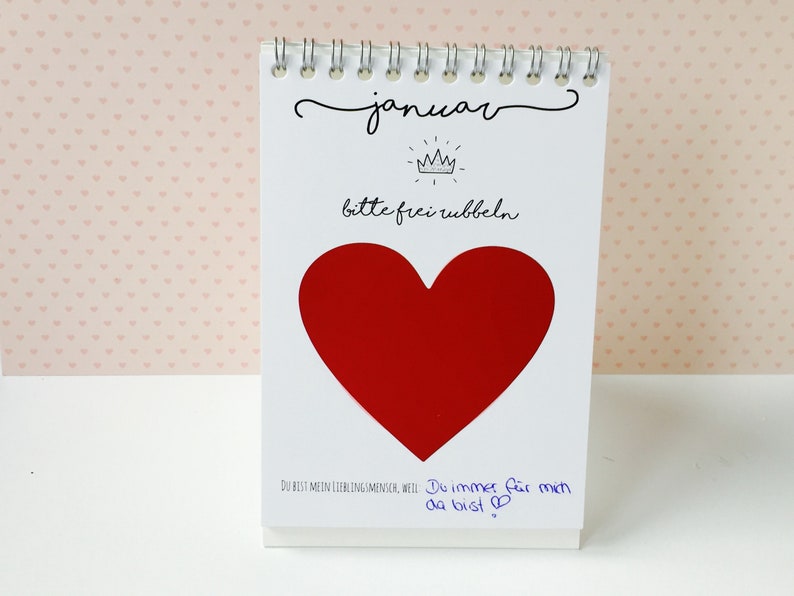 januar
bitte frei rubbeln
Du bist mein Lieblingsmensch, weil: Du immer für mich
da bist!